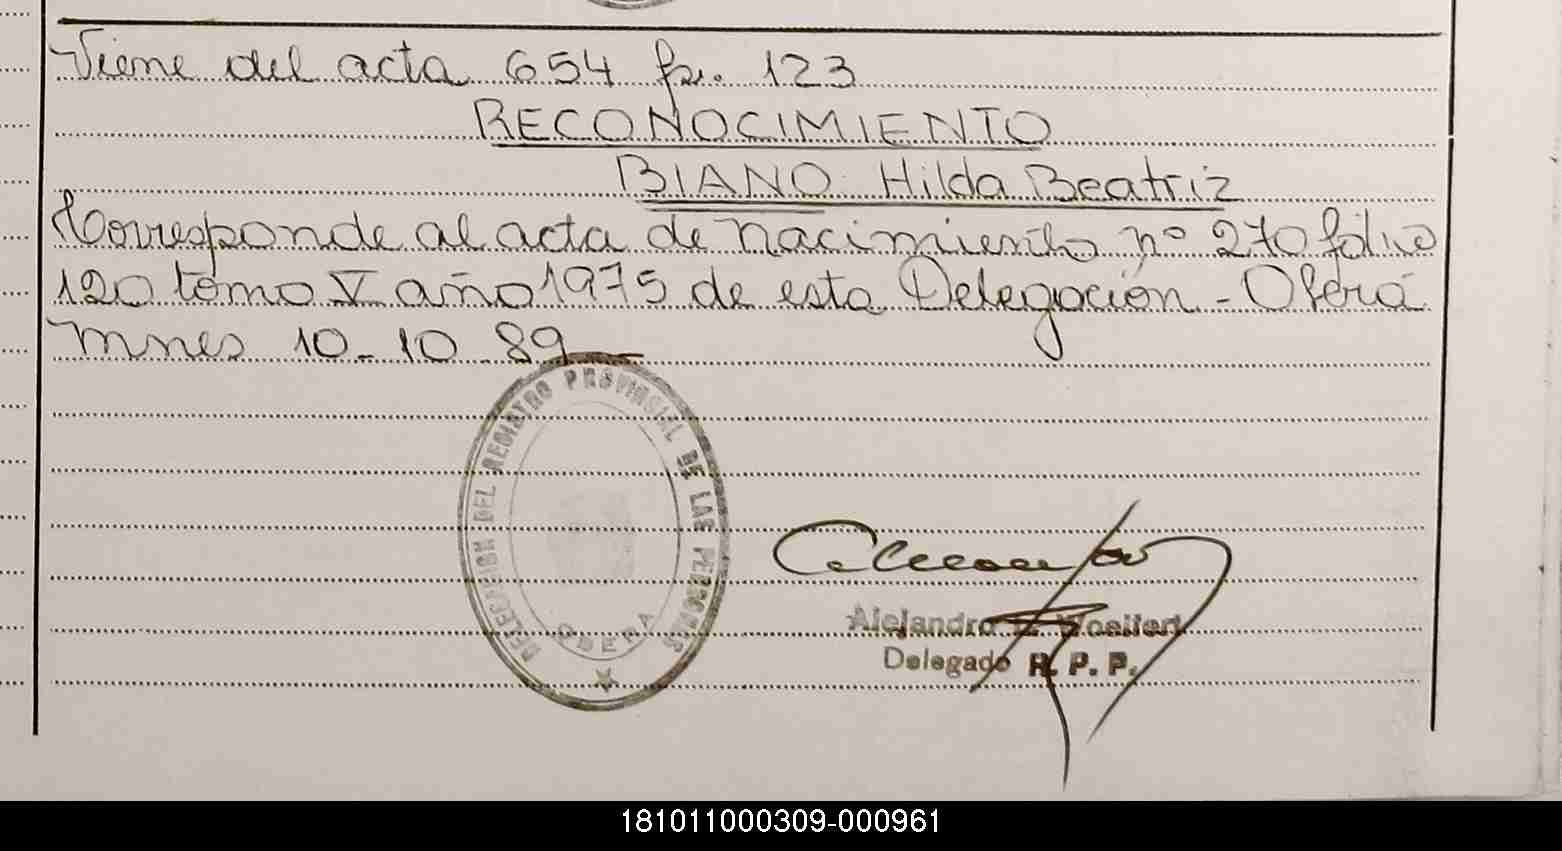 Viene del acta 654 fs. 123
RECONOCIMIENTO
BIANO Hilda Beatriz
Corresponde al acta de nacimiento nº 270 folio
120 tomo V año 1975 de esta Delegación - Oberá
Mnes 10-10-89
DELEGACION DEL REGISTRO PROVINCIAL DE LAS PERSONAS
OBERA
Alejandro
Delegado R. P. P.
181011000309-000961